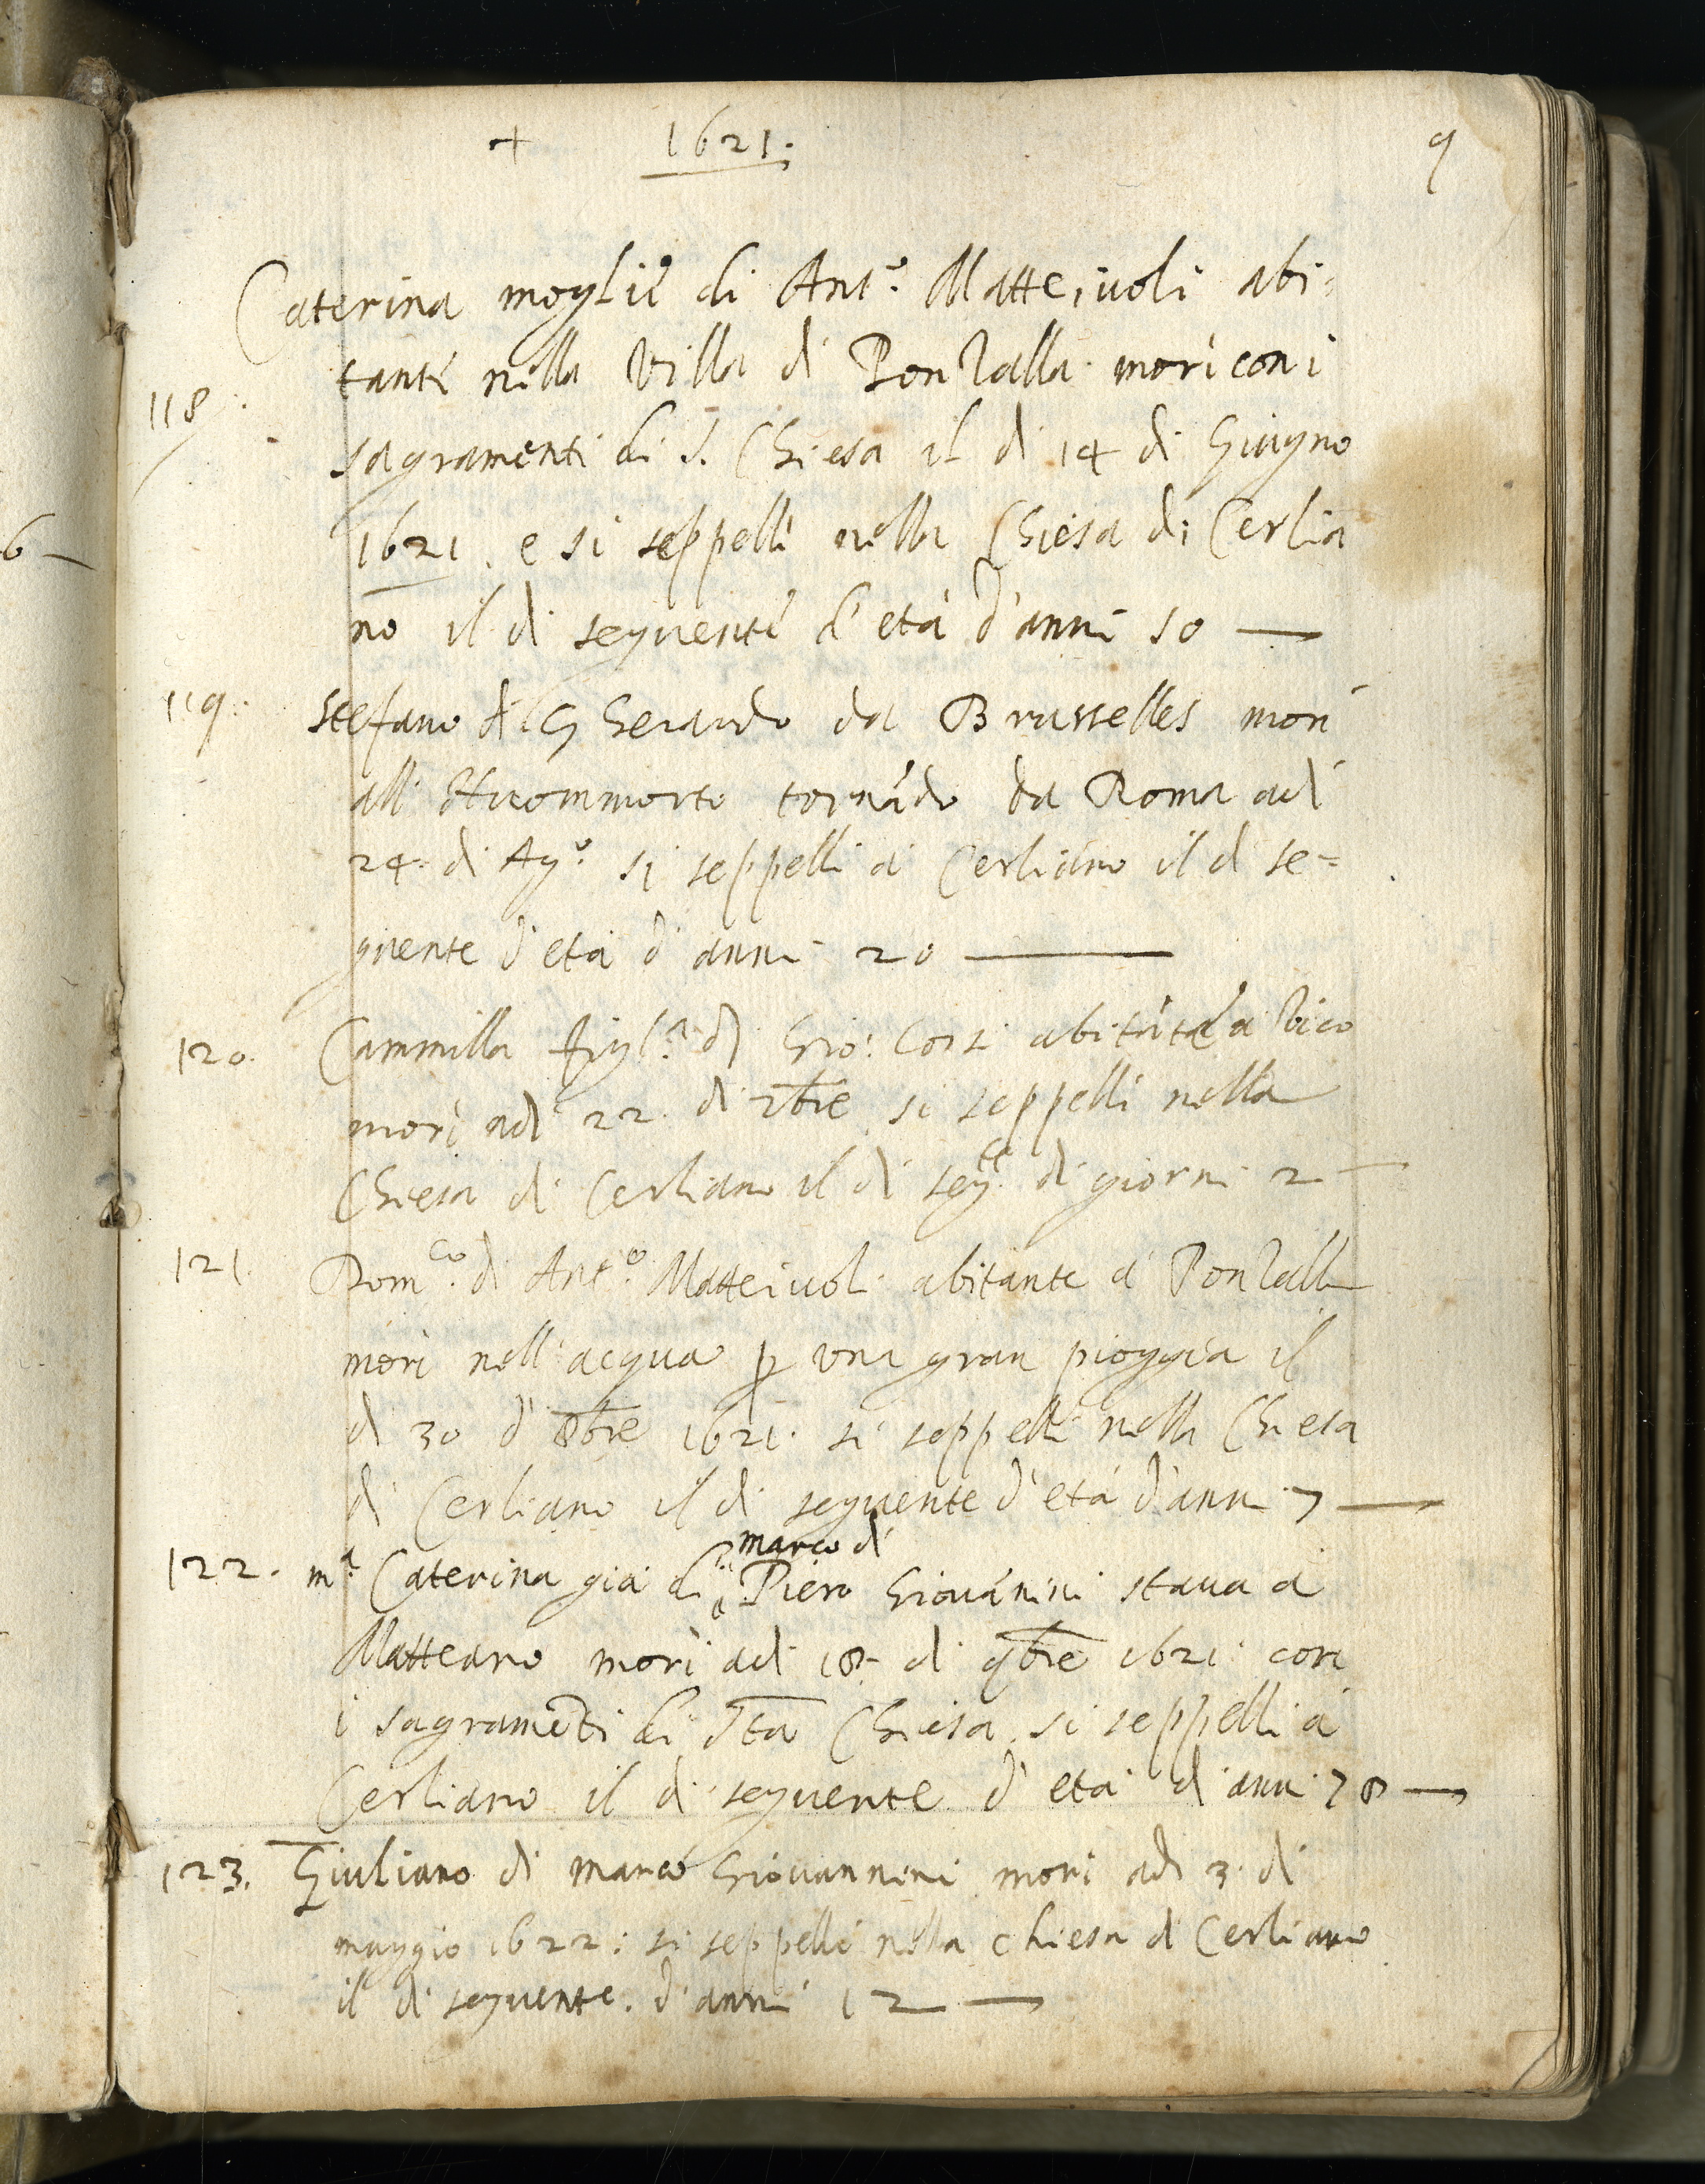 + 1621. 9
Caterina moglie di Ant.o Matteiuoli abi=
tante nella Villa di Ponzalla morì con i
118. sagramenti di S. Chiesa il dì 14 di Giugno
1621. e si seppellì nella Chiesa di Cerlia
no il dì seguente d'età d'anni 50 —
119. Stefano di Gherardo da Brusselles morì
all' Huommorto tornādo da Roma adì
24. di Ag.o si seppellì à Cerliano il dì se=
guente d'età d'anni 20 —
120. Cammilla figl.a di Gio: Corsi abitāte à Vico
morì adì 22. di 7bre si seppellì nella
Chiesa di Cerliano il dì seg.te di giorni 2 —
121. Dom.co di Ant.o Matteiuoli abitante à Ponzalla
morì nell' acqua p una gran pioggia il
dì 30 d' 8bre 1621. si seppellì nella Chiesa
di Cerliano il dì seguente d'età d'anni 7 —
marco di
122. m.a Caterina già di Piero Giovānini staua à
Matteano morì adì 18 di 9bre 1621. con
i sagramēti di Sta Chiesa si seppellì à
Cerliano il dì seguente d'età d'anni 78 —
123. Giuliano di marco Giouannini morì adì 3. di
maggio 1622: si seppellì nella chiesa di Cerliano
il dì seguente. d'anni 12 —